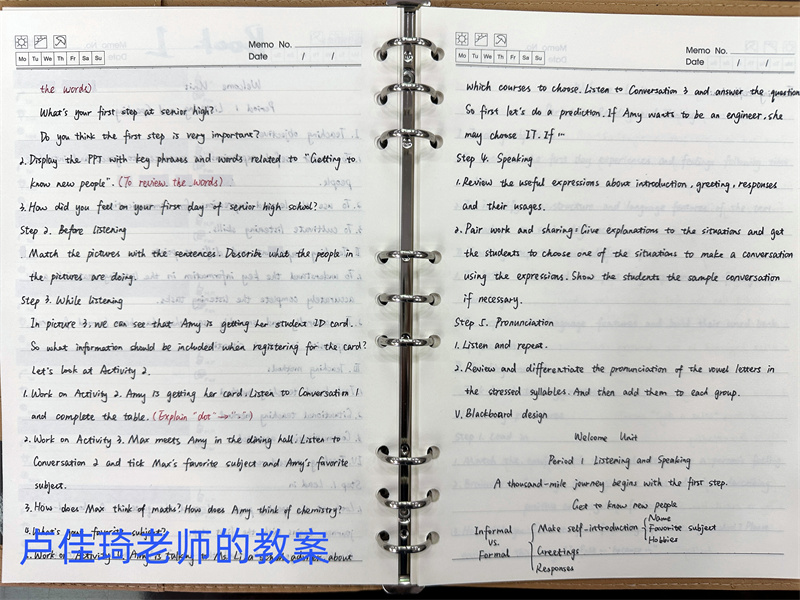 Memo No.
Mo Tu We Th Fr Sa Su
Date / /
the words)
What's your first step at senior high?
Do you think the first step is very important?
2. Display the PPT with key phrases and words related to "Getting to
know new people". (To review the words)
3. How did you feel on your first day of senior high school?
Step 2. Before listening
Match the pictures with the sentences. Describe what the people in
the pictures are doing.
Step 3. While listening
In picture 3, we can see that Amy is getting her student ID card.
So what information should be included when registering for the card?
Let's look at Activity 2.
1. Work on Activity 2. Amy is getting her card. Listen to Conversation 1
and complete the table. (Explain "dot" → ".")
2. Work on Activity 3. Max meets Amy in the dining hall. Listen to
Conversation 2 and tick Max's favorite subject and Amy's favorite
subject.
3. How does Max think of maths? How does Amy think of chemistry?
4. What's your favorite subject?
Work on Activity Amy is talking to Ms Li a school advisor about
卢佳琦老师的教案
Memo No.
Mo Tu We Th Fr Sa Su
Date / /
which courses to choose. Listen to Conversation 3 and answer the question
So first let's do a prediction. If Amy wants to be an engineer, she
may choose IT. If ...
Step 4. Speaking
1. Review the useful expressions about introduction, greeting, responses
and their usages.
2. Pair work and sharing: Give explanations to the situations and get
the students to choose one of the situations to make a conversation
using the expressions. Show the students the sample conversation
if necessary.
Step 5. Pronunciation
1. Listen and repeat.
2. Review and differentiate the pronunciation of the vowel letters in
the stressed syllables. And then add them to each group.
V. Blackboard design
Welcome Unit
Period 1 Listening and Speaking
A thousand-mile journey begins with the first step.
Get to know new people
Informal
vs.
Formal
Make self-introduction
Name
Favorite subject
Hobbies
Greetings
Responses